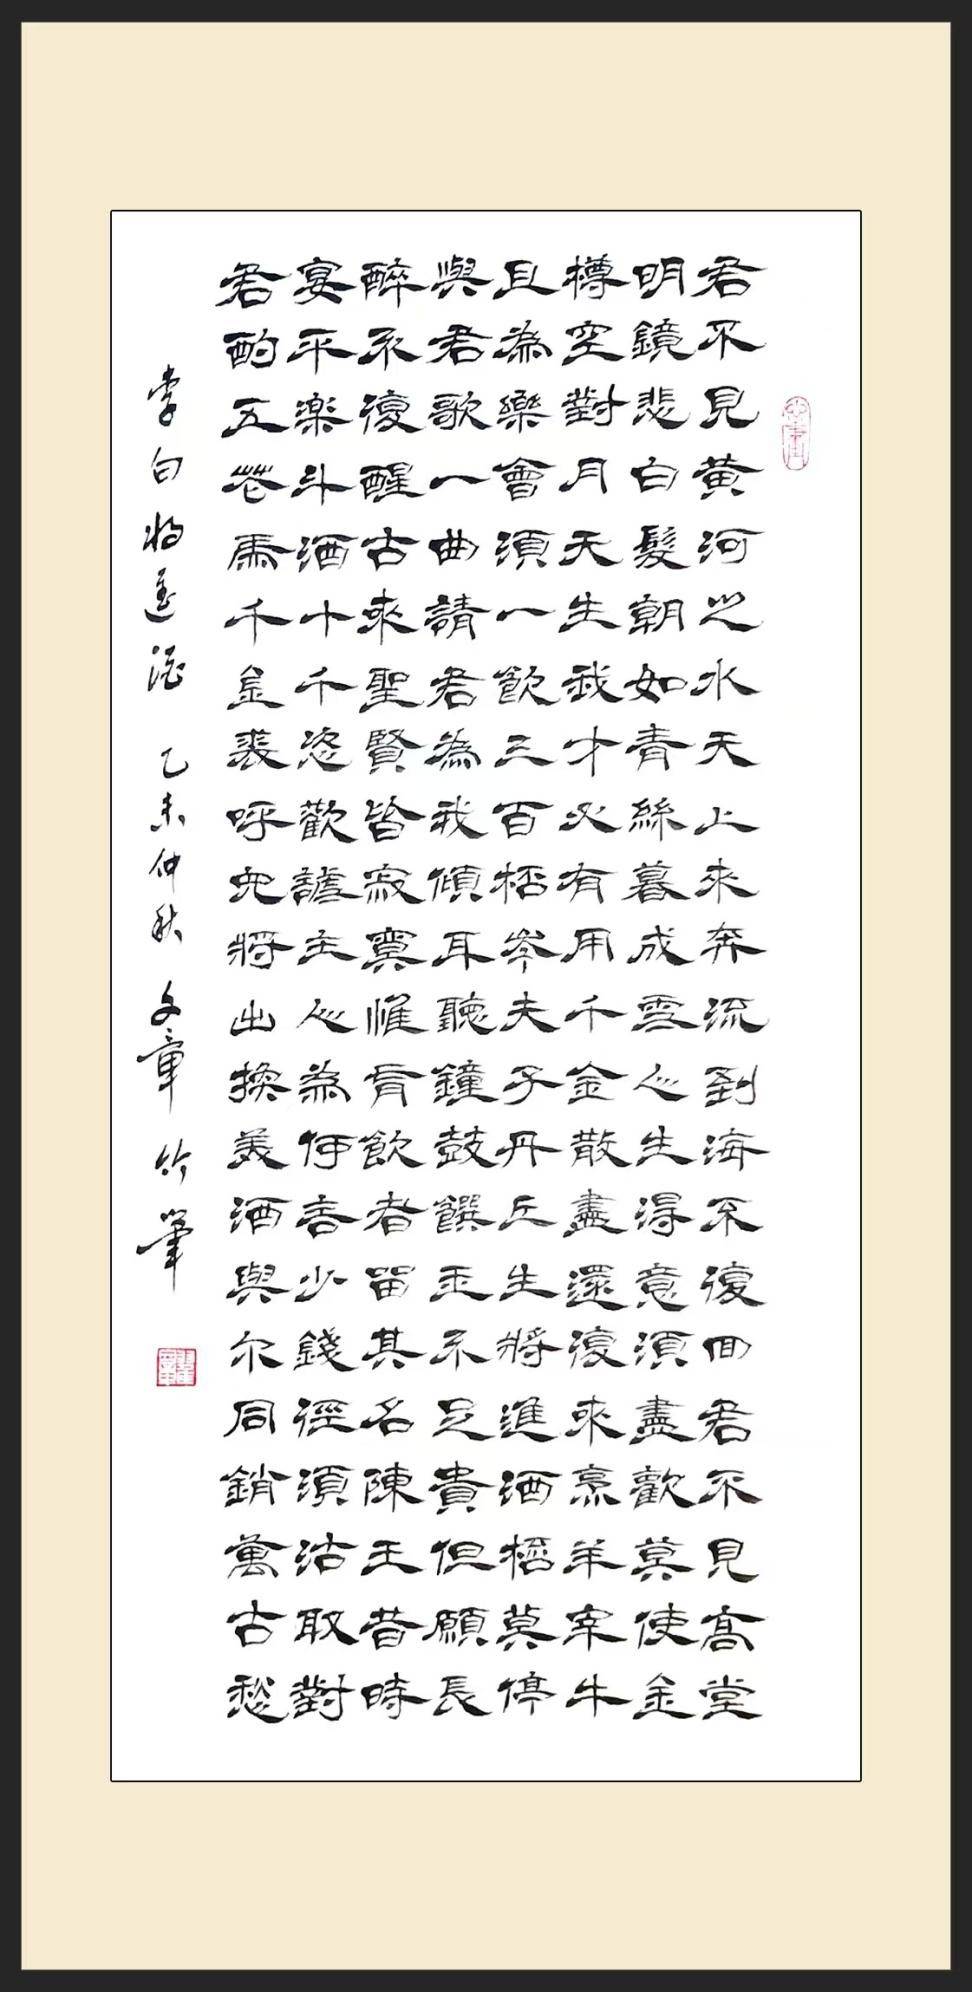 君不見黄河之水天上来奔流到海不復回君不見高堂
明鏡悲白髮朝如青絲暮成雪人生得意須盡歡莫使金
樽空對月天生我才必有用千金散盡還復来烹羊宰牛
且為樂會須一飲三百桮岑夫子丹丘生將進酒桮莫停
與君歌一曲請君為我傾耳聽鐘鼓饌玉不足貴但願長
醉不復醒古来聖賢皆寂寞惟有飲者留其名陳王昔時
宴平楽斗酒十千恣歡謔主人為何言少錢徑須沽取對
君酌五花馬千金裘呼兒將出換美酒與尔同銷萬古愁
李白将進酒 乙未仲秋 文章 竹筆